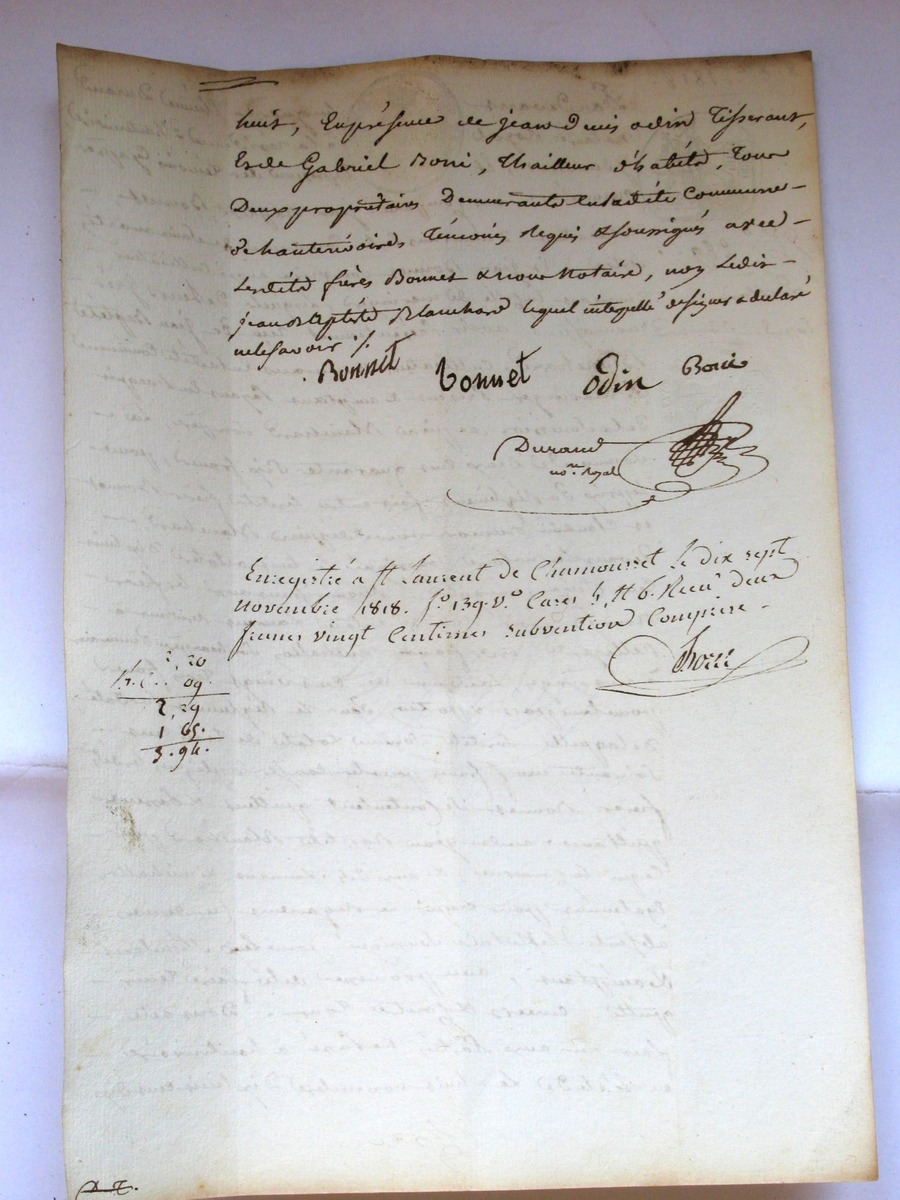 huit, En présence de jean Denis odin Tisserant,
Et de Gabriel Boni, Thailleur d'habits, Tous
Deux propriétaires Demeurants en ladite Commune
de hauterivoires Témoins requis & soussignés avec
Lesdits frères Bonnet & nous Notaire, non Ledit
jean Baptiste Blanchard lequel interpellé de signer a declaré
ne le savoir ./.
Bonnet bonnet odin Boni
Durand
no.re Royal
Enregistré à St Laurent de Chamousset Le dix sept
novembre 1818. f.o 139. v.o Cases 5, & 6. Recu deux
francs vingt Centimes subvention Comprise
2,20
09.
2,29
1,65.
3.94.